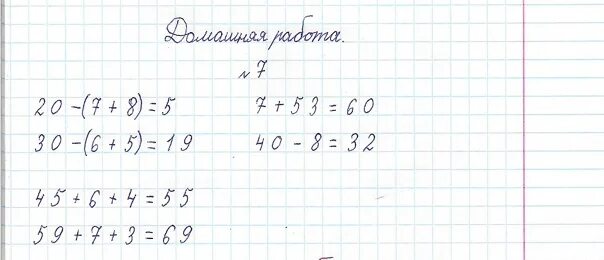 Домашняя работа.
№7
20-(7+8)=5 7+53=60
30-(6+5)=19 40-8=32
45+6+4=55
59+7+3=69